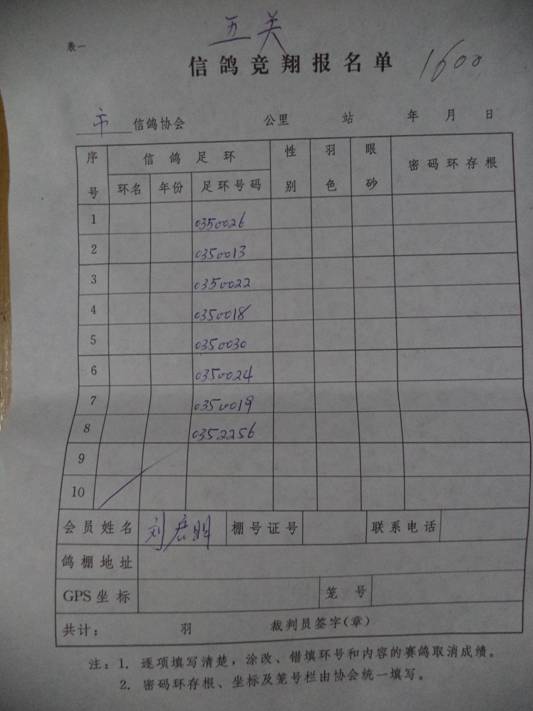 五关
表一
信鸽竞翔报名单 1600
市 信鸽协会 公里 站 年 月 日
序号 信鸽足环 性别 羽色 眼砂 密码环存根
环名 年份 足环号码
1 0350026
2 0350013
3 0350022
4 0350018
5 0350030
6 0350024
7 0350019
8 0352256
9
10
会员姓名 刘 明 棚号证号 联系电话
鸽棚地址
GPS坐标 笼号
共计: 羽 裁判员签字(章)
注:1. 逐项填写清楚,涂改、错填环号和内容的赛鸽取消成绩。
2. 密码环存根、坐标及笼号栏由协会统一填写。